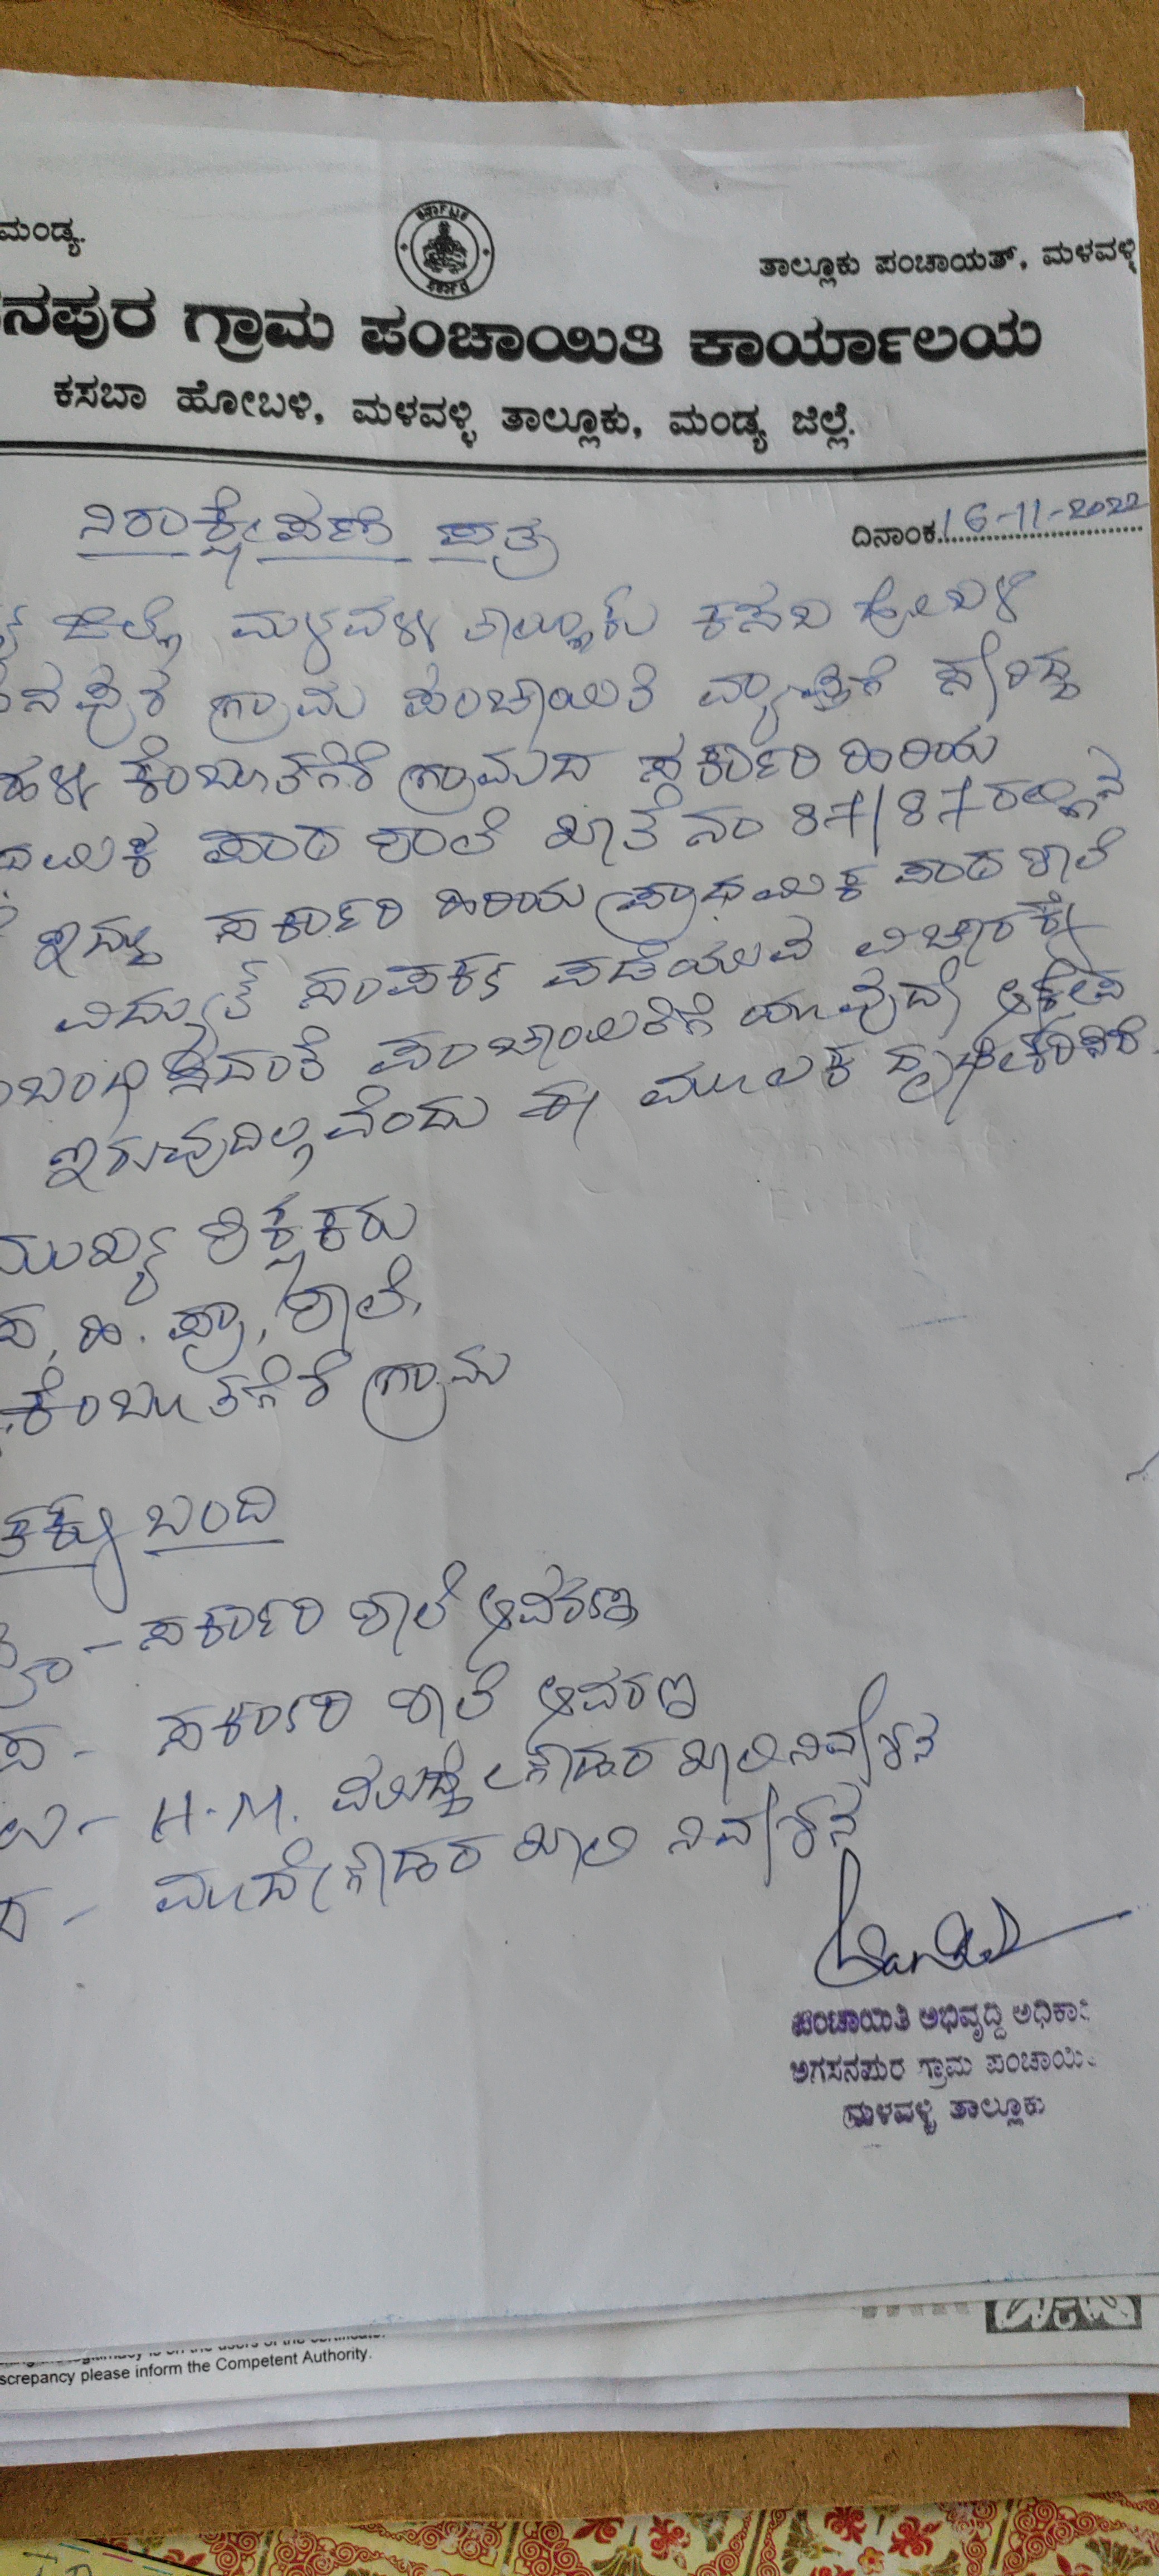 ಮಂಡ್ಯ.
ತಾಲ್ಲೂಕು ಪಂಚಾಯತ್, ಮಳವಳ್ಳಿ
ನಪುರ ಗ್ರಾಮ ಪಂಚಾಯಿತಿ ಕಾರ್ಯಾಲಯ
ಕಸಬಾ ಹೋಬಳಿ, ಮಳವಳ್ಳಿ ತಾಲ್ಲೂಕು, ಮಂಡ್ಯ ಜಿಲ್ಲೆ.
ನಿರಾಕ್ಷೇಪಣೆ ಪತ್ರ
ದಿನಾಂಕ. 16-11-2022
ಜಿಲ್ಲೆ ಮಳವಳ್ಳಿ ತಾಲ್ಲೂಕು ಕಸಬ ಹೋಬಳಿ
ನಪುರ ಗ್ರಾಮ ಪಂಚಾಯಿತಿ ವ್ಯಾಪ್ತಿಗೆ ಸೇರಿದ್ದ
ಹಳ್ಳಿ ಕೆಂಬೂತಗೆರೆ ಗ್ರಾಮದ ಸರ್ಕಾರಿ ಹಿರಿಯ
ಮಿಕ ಪಾಠ ಶಾಲೆ ಖಾತೆ ನಂ 87/87 ರಲ್ಲಿನ
ಇದ್ದು ಸರ್ಕಾರಿ ಹಿರಿಯ ಪ್ರಾಥಮಿಕ ಪಾಠ ಶಾಲೆ
ವಿದ್ಯುತ್ ಸಂಪರ್ಕ ಪಡೆಯುವ ವಿಚಾರಕ್ಕೆ
ಬಂಧಿಸಿದಂತೆ ಪಂಚಾಯಿತಿಗೆ ಯಾವುದೇ ಆಕ್ಷೇಪ
ಇರುವುದಿಲ್ಲವೆಂದು ಈ ಮೂಲಕ ದೃಢೀಕರಿಸಿದೆ.
ಮುಖ್ಯ ಶಿಕ್ಷಕರು
ಸ. ಹಿ. ಪ್ರಾ, ಶಾಲೆ,
ಕೆಂಬೂತಗೆರೆ ಗ್ರಾಮ
ಚಕ್ಕು ಬಂದಿ
– ಸರ್ಕಾರಿ ಶಾಲೆ ಆವರಣ
ಪ – ಸರ್ಕಾರಿ ಶಾಲೆ ಆವರಣ
ಉ – H.M. ಗೌಡರ ಖಾಲಿ ನಿವೇಶನ
ದ – ಮಾದೇಗೌಡರ ಖಾಲಿ ನಿವೇಶನ
ಪಂಚಾಯಿತಿ ಅಭಿವೃದ್ಧಿ ಅಧಿಕಾ
ಅಗಸನಪುರ ಗ್ರಾಮ ಪಂಚಾಯಿ
ಮಳವಳ್ಳಿ ತಾಲ್ಲೂಕು
screpancy please inform the Competent Authority.